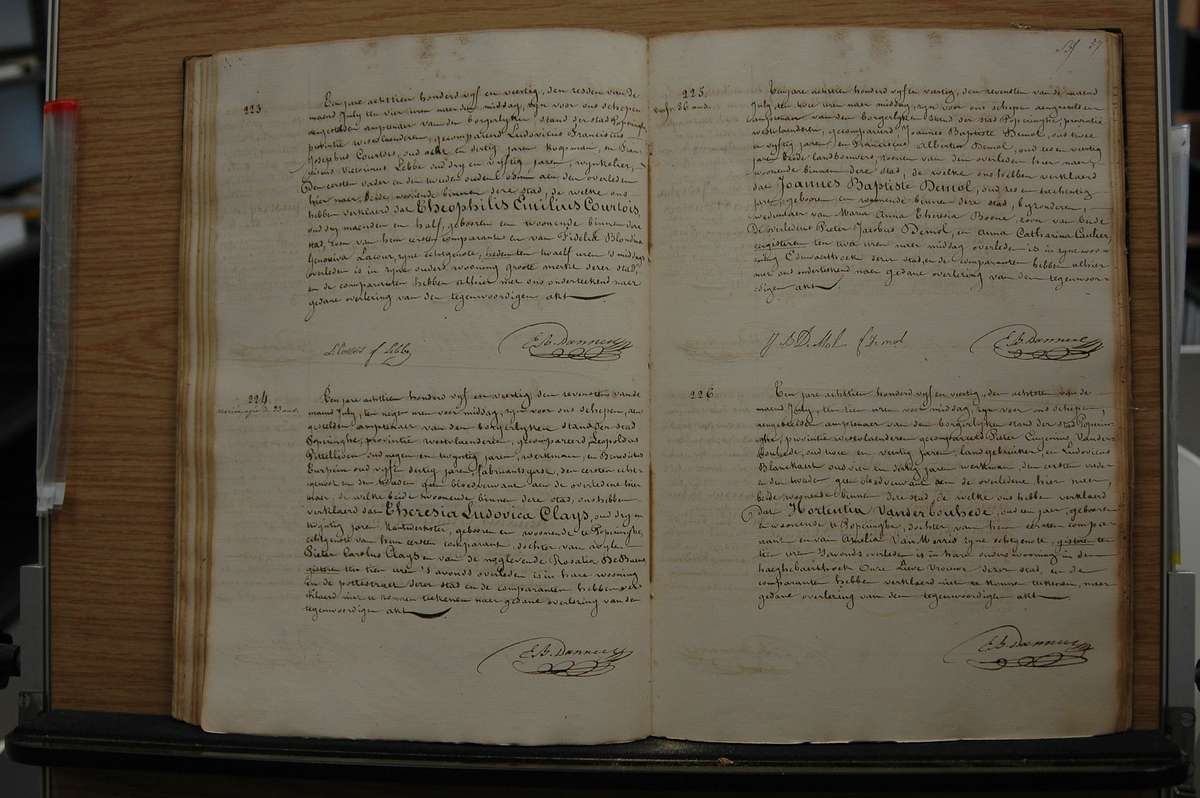 223
Een jare achttien honderd vyf en veertig, den sesden van de
maend July ten vier uren naer middag, zyn voor ons schepen
aengestelden amptenaer van den borgerlyken stand der stad Poperinghe,
provintie westvlaenderen, gecompareerd Ludovicus Franciscus
Josephus Courtois, oud acht en dertig jaren koopman, en Fran-
ciscus Victorinus Lebbe oud dry en vyftig jaren, wynkelier,
den eersten vader en den tweeden oudend oom aen den overleden
hier naer, beide woonende binnen deze stad, de welke ons
hebben verklaerd dat Theophilis Emilius Courtois,
oud dry maenden en half, geboren en woonende binnen deze
stad, zoon van hem eersten comparant en van Fidelia Blondina
Genoveva Lacour, zyne echtgenote, heden ten twaelf uren 's middags
overleden is in zyne ouders wooning groote markt dezer stad,
en de comparanten hebben alhier met ons onderteekend naer
gedane overlezing van den tegenwoordigen akt
L Courtois f Lebbe
E. A. Danneel
224
Een jare achttien honderd vyf en veertig, den sevensten van de
maend July, ten negen uren voor middag, zyn voor ons schepen, aen-
gestelden amptenaer van den borgerlyken stand der stad
Poperinghe, provintie westvlaenderen, gecompareerd Leopoldus
oud negen en twyntig jaren, werkman, en Benedictus
oud vyf en dertig jaren, fabriantsgast, den eersten echt-
genoot en den tweeden geen bloedverwant aen de overledene hier
naer, de welke beide woonende binnen deze stad, ons hebben
verklaerd dat Theresia Ludovica Clays, oud dry en
twyntig jaren, kantwerkster, geboren en woonende te Poperinghe,
echtgenote van hem eersten comparant, dochter van wyle
Pieter Carolus Clays en van de nog levende Rosalia
gisteren ten tien uren 's avonds overleden is in hare wooning
in de potterstraet dezer stad en de comparanten hebben ver-
klaerd niet te konnen teekenen naer gedane overlezing van den
tegenwoordigen akt
E. A. Danneel
37
225
Een jare achttien honderd vyf en veertig, den sevensten van de maend
July, ten twee uren naer middag, zyn voor ons schepen aengestelden
amptenaer van den borgerlyken stand der stad Poperinghe, provintie
westvlaenderen, gecompareerd Joannes Baptiste Demol, oud twee
en vyftig jaren, en Franciscus Albertin Demol, oud zes en veertig
jaren beide landbouwers, zoonen van den overleden hier naer,
woonende binnen deze stad, de welke ons hebben verklaerd
dat Joannes Baptiste Demol, oud zes en tachentig
jaren, geboren en woonende binnen deze stad, byzonderen,
weduwaer van Maria Anna Theresia Boone, zoon van beide
de overledens Pieter Jacobus Demol, en Anna Catharina
eergisteren ten twee uren naer middag overleden is in zyne woo-
ning Edewaerthoek dezer stad, en de comparanten hebben alhier
met ons onderteekend naer gedane overlezing van den tegenwoor-
digen akt
J B De Mol f Demol
E. A. Danneel
226
Een jare achttien honderd vyf en veertig, den achtsten van de
maend July, ten tien uren voor middag, zyn voor ons schepen,
aengestelden amptenaer van den borgerlyken stand der stad Poperin-
ghe, provintie westvlaenderen gecompareerd Pieter Eugenius Vander
Bouhede, oud twee en veertig jaren, landgebruiker, en Ludovicus
Blanckaert oud vier en dertig jaren werkman, den eersten vader
en den tweeden geen bloedverwant aen de overledene hier naer,
beide woonende binnen deze stad, de welke ons hebben verklaerd
dat Hortentia Vanderbouhede, oud een jaer, geboren
en woonende te Poperinghe, dochter van hem eersten compa-
rant en van Amelia Van Merris zyne echtgenote, gisteren ten
tien uren 's avonds overleden is in hare ouders wooning in de
haeghebaerthoek Onze Lieve Vrouwe dezer stad, en de
comparanten hebben verklaerd niet te konnen teekenen, naer
gedane overlezing van den tegenwoordigen akt
E. A. Danneel